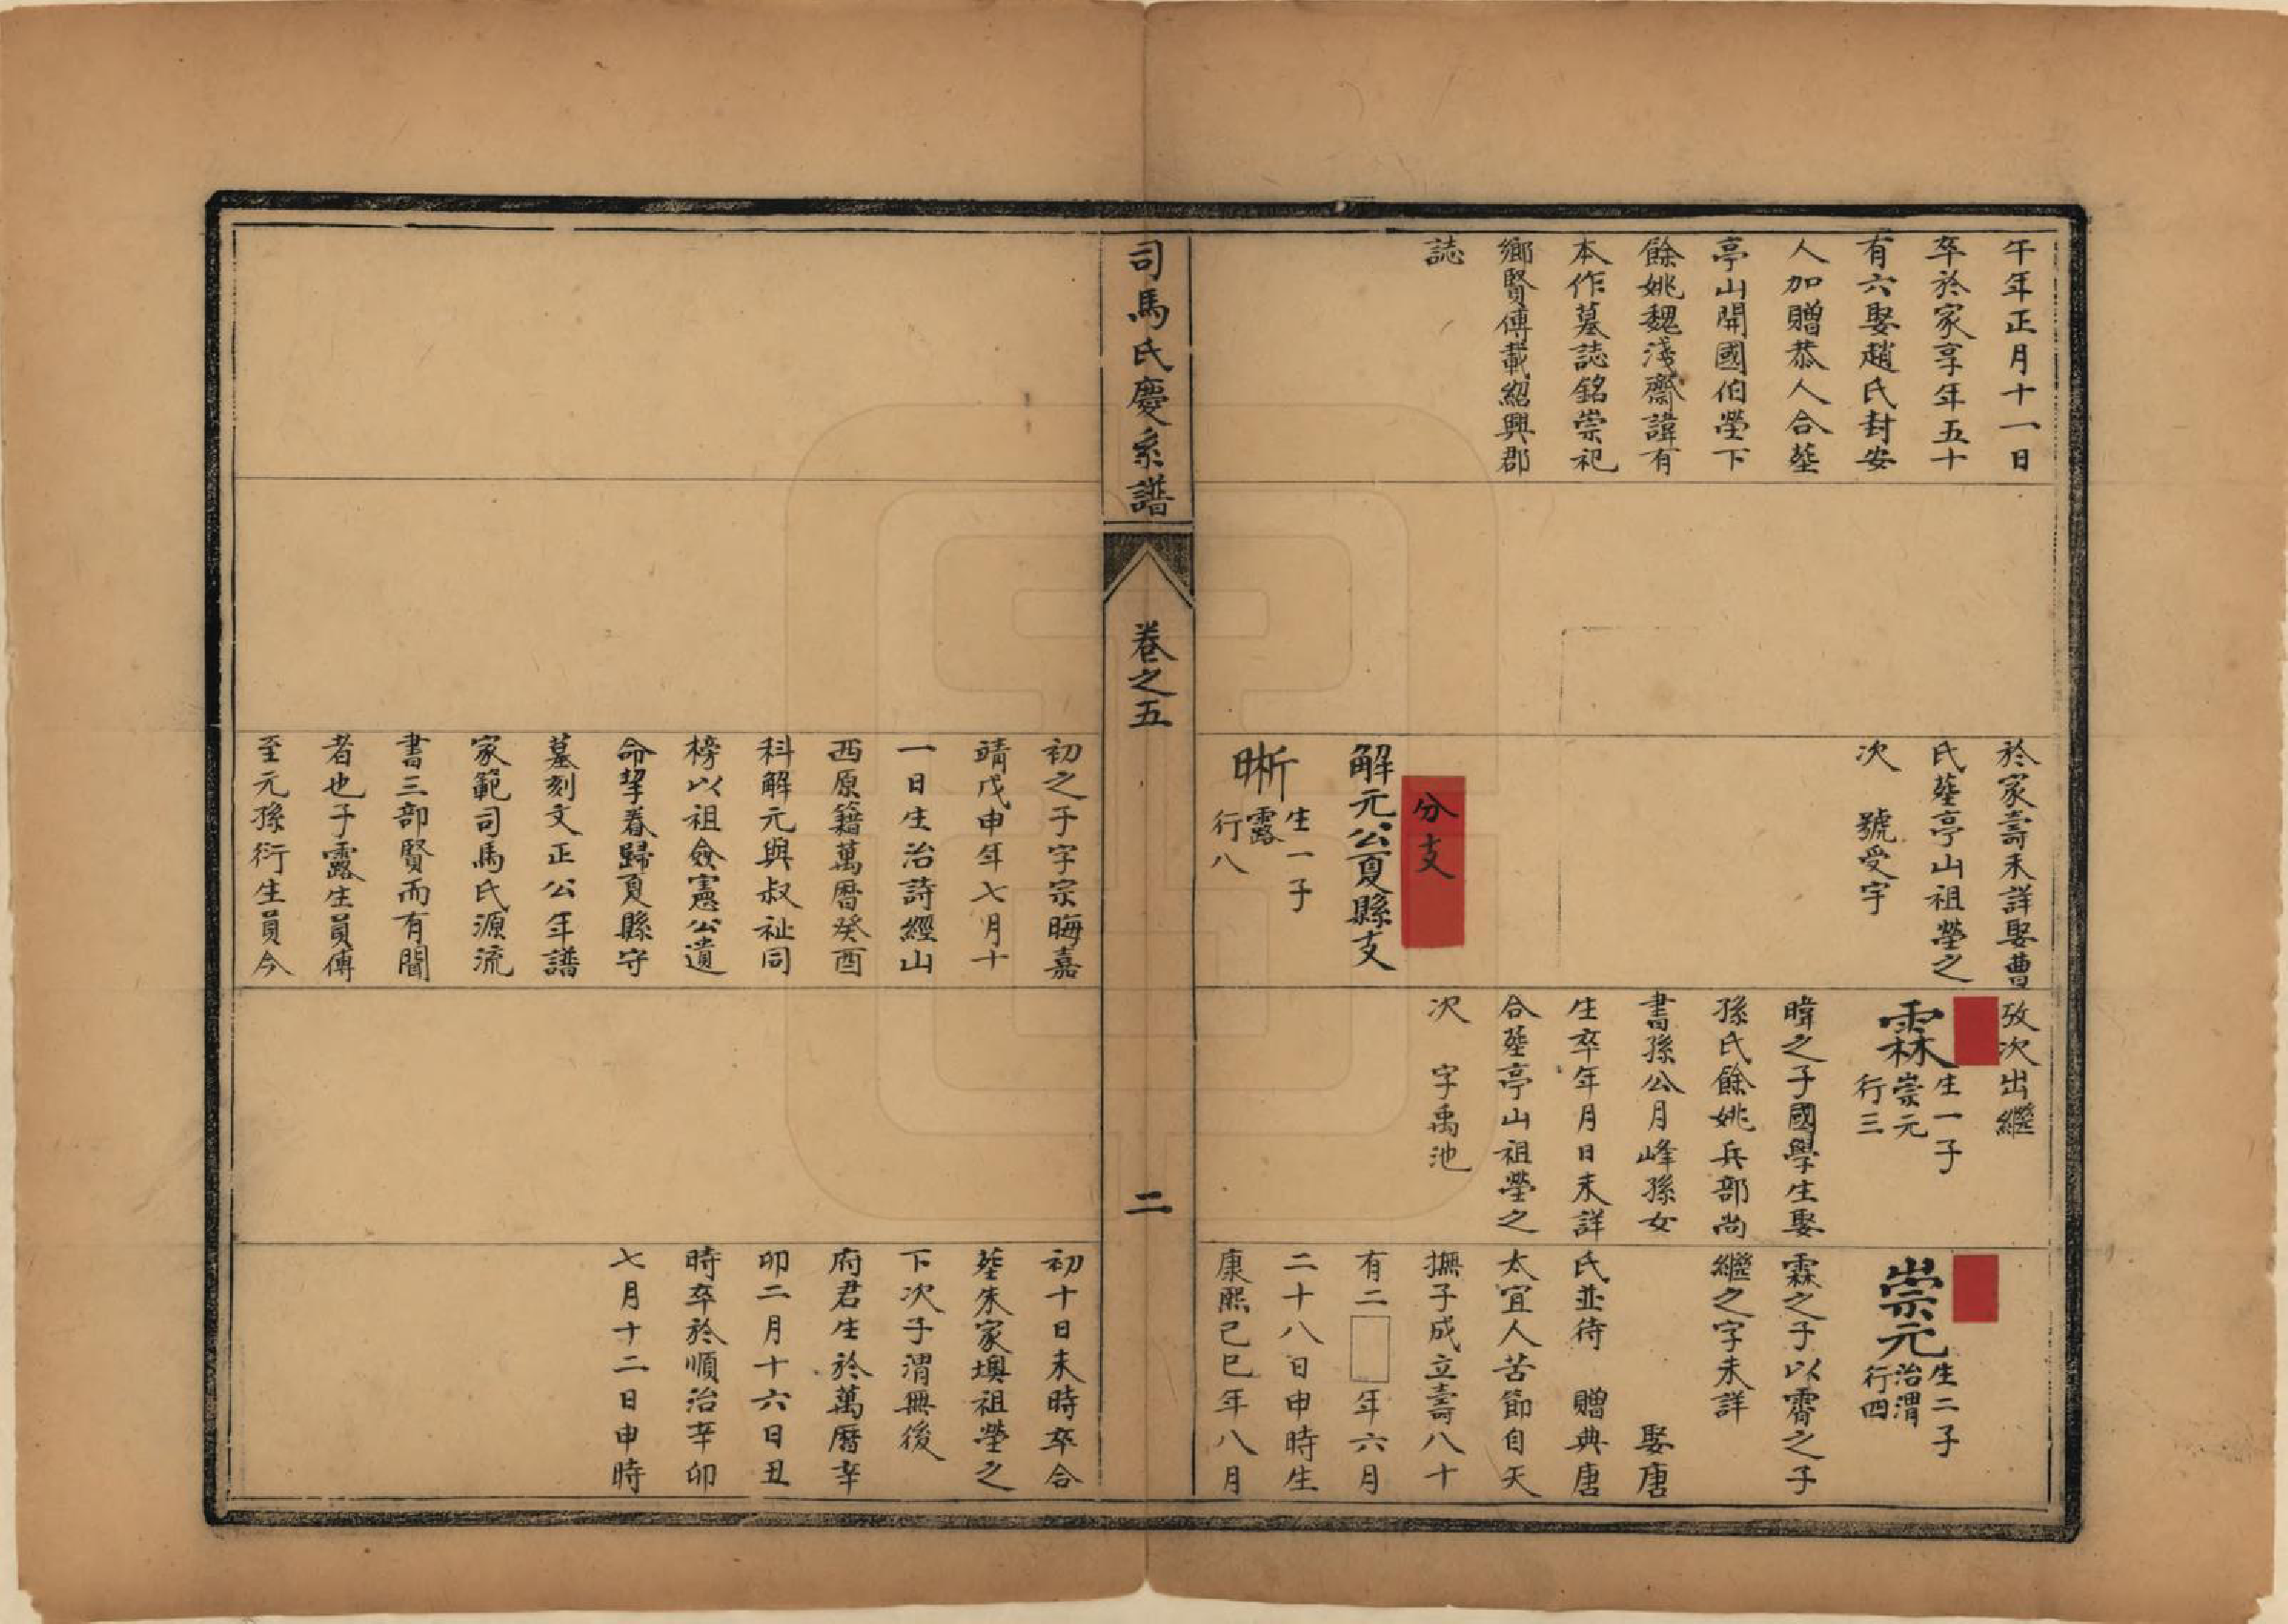 午年正月十一日
卒於家享年五十
有六娶趙氏封安
人加贈恭人合塟
亭山開國伯塋下
餘姚魏淺齋諱有
本作墓誌銘崇祀
鄉賢傳載紹興郡
誌
於家壽未詳娶曹
氏塟亭山祖塋之
次　號受宇
分支
解元公夏縣支
晰
生一子
露
行八
攷次出繼
霖
生一子
崇元
行三
暐之子國學生娶
孫氏餘姚兵部尚
書孫公月峰孫女
生卒年月日未詳
合塟亭山祖塋之
次　字禹池
崇元
生二子
治渭
行四
霖之子以霽之子
繼之字未詳
娶唐
氏並待　贈典唐
太宜人苦節自天
撫子成立壽八十
有二□年六月
二十八日申時生
康熙己巳年八月
司馬氏慶系譜
卷之五
二
初之子字宗晦嘉
靖戊申年七月十
一日生治詩經山
西原籍萬曆癸酉
科解元與叔祉同
榜以祖僉憲公遺
命挈眷歸夏縣守
墓刻文正公年譜
家範司馬氏源流
書三部賢而有聞
者也子露生員傳
至元孫衍生員今
初十日未時卒合
塟朱家墺祖塋之
下次子渭無後
府君生於萬曆辛
卯二月十六日丑
時卒於順治辛卯
七月十二日申時